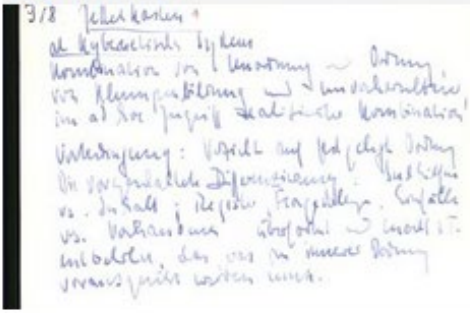 9/8 Zettelkasten
als kybernetisches System
Kombination von Unordnung und Ordnung
von Klumpenbildung und unvorhersehbarer
im ad hoc Zugriff realisierter Kombination
Vorbedingung: Verzicht auf festgelegte Ordnung
Die vorgeschaltete Differenzierung: Suchhilfen
vs. Inhalt; Register, Fragestellungen, Einfälle
vs. Vorhandenes überformt und macht z.T.
entbehrlich, das was an innerer Ordnung
vorausgesetzt werden muß.